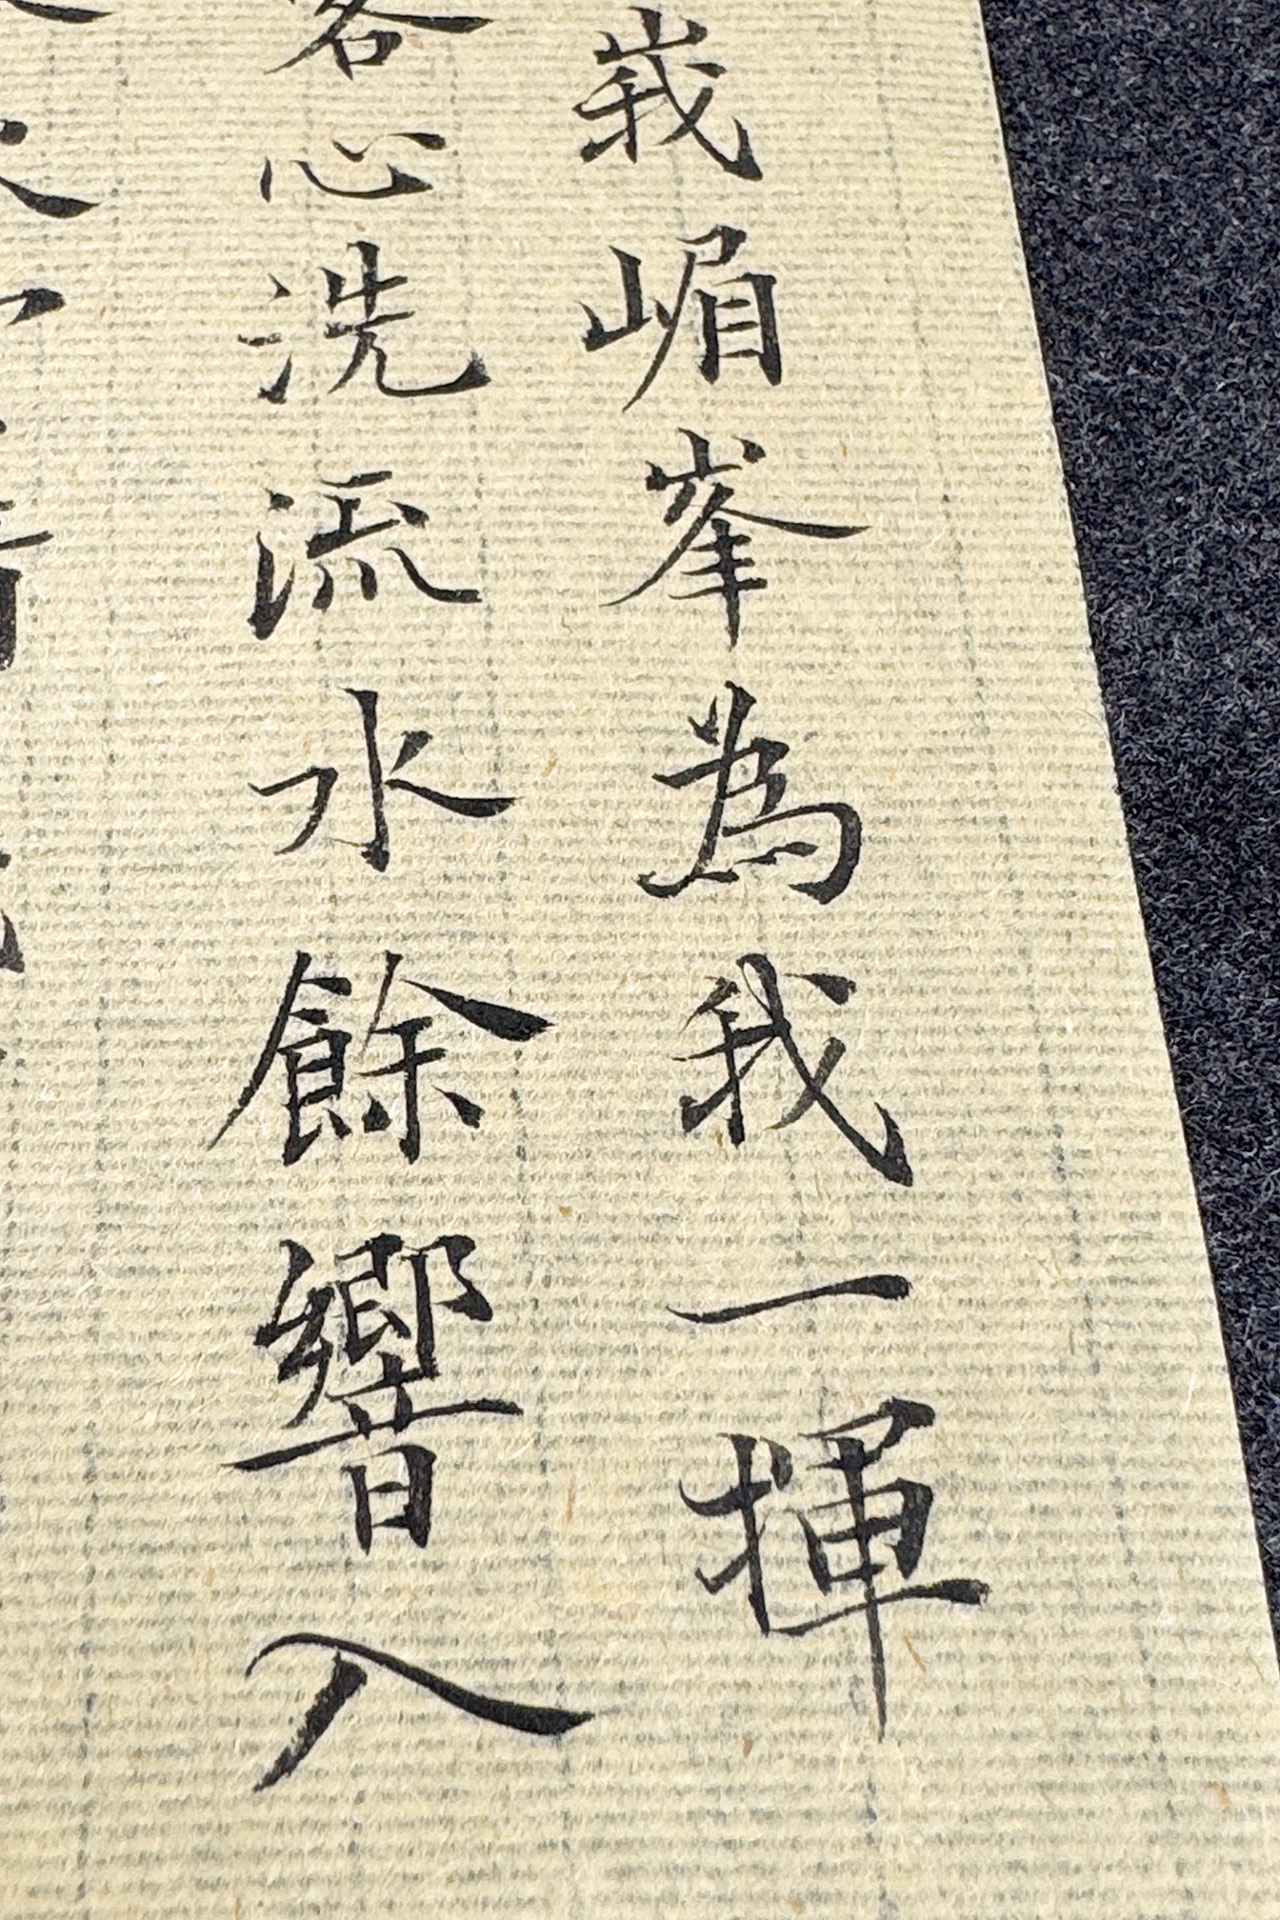 峩嵋峯為我一揮
客心洗流水餘響入